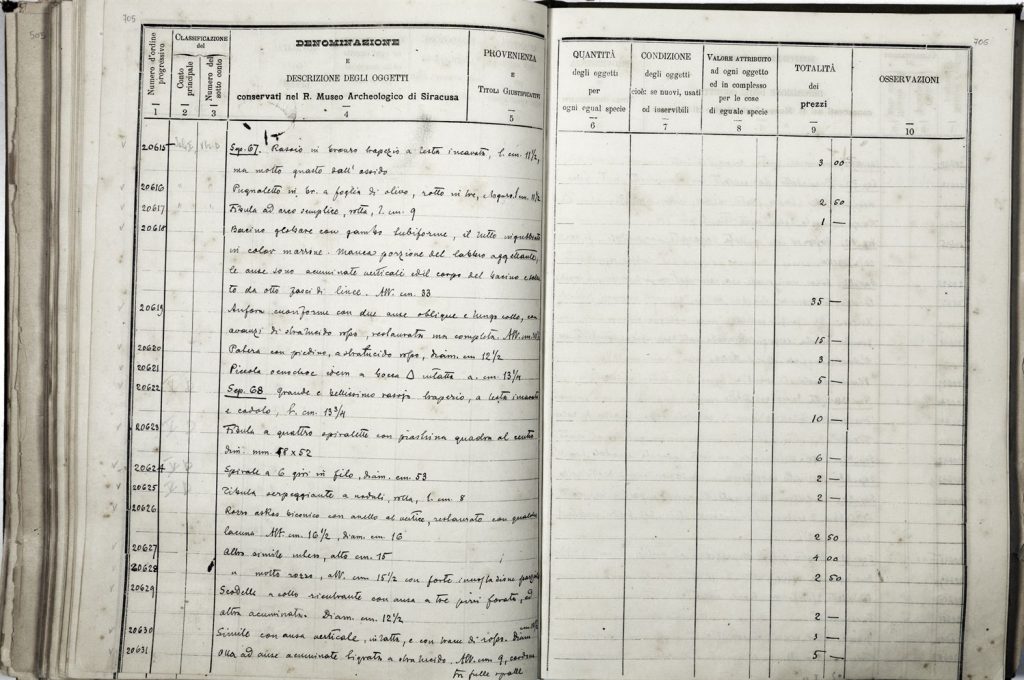 705
Numero d'ordine progressivo
CLASSIFICAZIONE del
Conto principale
Numero del sotto conto
DENOMINAZIONE
E
DESCRIZIONE DEGLI OGGETTI
conservati nel R. Museo Archeologico di Siracusa
PROVENIENZA
E
TITOLI GIUSTIFICATIVI
1 2 3 4 5
20615 Sep. 67. Rasoio in bronzo trapezio a testa incavata, l. cm. 11 1/2,
ma molto guasto dall' ossido
20616 Pugnaletto in br. a foglia di olivo, rotto in tre, cm. 11 1/2
20617 Fibula ad arco semplice, rotta, l. cm. 9
20618 Bacino globare con gambo tubiforme, il tutto
in color marrone. Manca porzione del labbro aggettante,
le anse sono acuminate verticali ed il corpo del bacino
to da otto fasci di linee. Alt. cm. 33
20619 Anfora cuoriforme con due anse oblique e lungo collo, con
avanzi di stralucido rosso, restaurata ma completa. Alt. cm.
20620 Patera con piedino, a stralucido rosso, diam. cm 12 1/2
20621 Piccola oenochoe idem a bocca Δ intatta a. cm. 13 1/4
20622 Sep. 68 Grande e bellissimo rasojo trapezio, a testa incavata
e codolo, l. cm. 13 3/4
20623 Fibula a quattro spiralette con piastrina quadra al centro
dim. mm. 48 x 52
20624 Spirale a 6 giri in filo, diam. cm. 53
20625 Fibula serpeggiante a noduli, rotta, l. cm. 8
20626 Rozzo askos biconico con anello al vertice, restaurato con qualche
lacuna Alt. cm. 16 1/2, diam. cm. 16
20627 Altro simile intero, alto cm. 15
20628 " molto rozzo, alt. cm 15 1/2 con forte incrostazione
20629 Scodella a collo rientrante con ansa a tre pizzi forata, ed
altra acuminata. Diam. cm. 12 1/2
20630 Simile con ansa verticale, intatta, e con tracce di rosso. Diam
20631 Olla ad anse acuminate ligrata a stralucido. Alt. cm 9, cordoni
sulle spalle
706
QUANTITÀ
degli oggetti
per
ogni egual specie
CONDIZIONE
degli oggetti
cioè: se nuovi, usati
od inservibili
VALORE ATTRIBUITO
ad ogni oggetto
ed in complesso
per le cose
di eguale specie
TOTALITÀ
dei
prezzi
OSSERVAZIONI
6 7 8 9 10
3 00
2 50
1 —
35 —
15 —
3 —
5 —
10 —
6 —
2 —
2 —
2 50
4 00
2 50
2 —
3 —
5 —